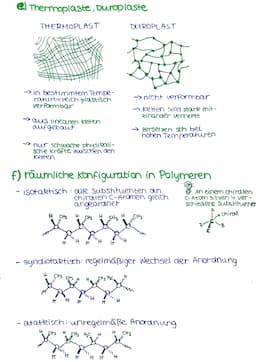 e) Thermoplaste, Duroplaste
THERMOPLAST
DUROPLAST
→ in bestimmtem Tempe-
raturbereich plastisch
verformbar
→ aus linearen Ketten
aufgebaut
→ nur schwache physikali-
sche Kräfte zwischen den
Ketten
→ nicht verformbar
→ Ketten sind stark mit-
einander vernetzt
→ zersetzen sich bei
hohen Temperaturen
f) räumliche Konfiguration in Polymeren
- isotaktisch: alle Substituenten an
chiralen C-Atomen gleich
angeordnet
An einem chiralen
C-Atom sitzen 4 ver-
schiedene Substituenten
chiral
- syndiotaktisch: regelmäßiger Wechsel der Anordnung
- ataktisch: unregelmäßige Anordnung